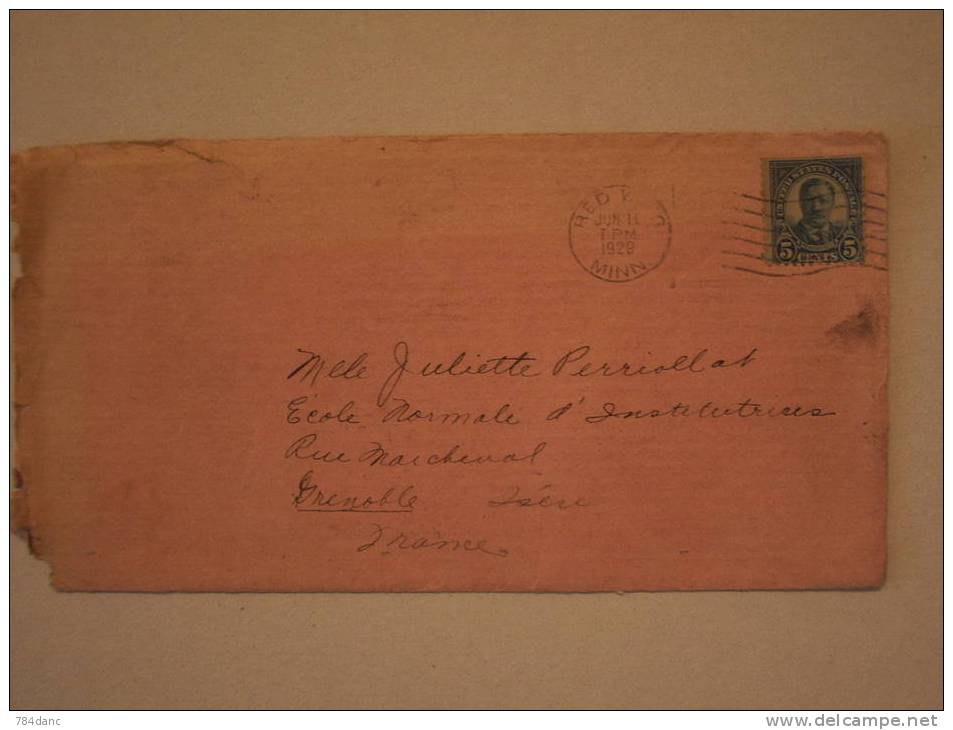 RED WING
JUN 11
7 PM
1928
MINN.
UNITED STATES POSTAGE
5 CENTS 5
Melle Juliette Perriollat
École Normale d'Institutrices
Rue Marcheval
Grenoble Isère
France.
784danc
www.delcampe.net